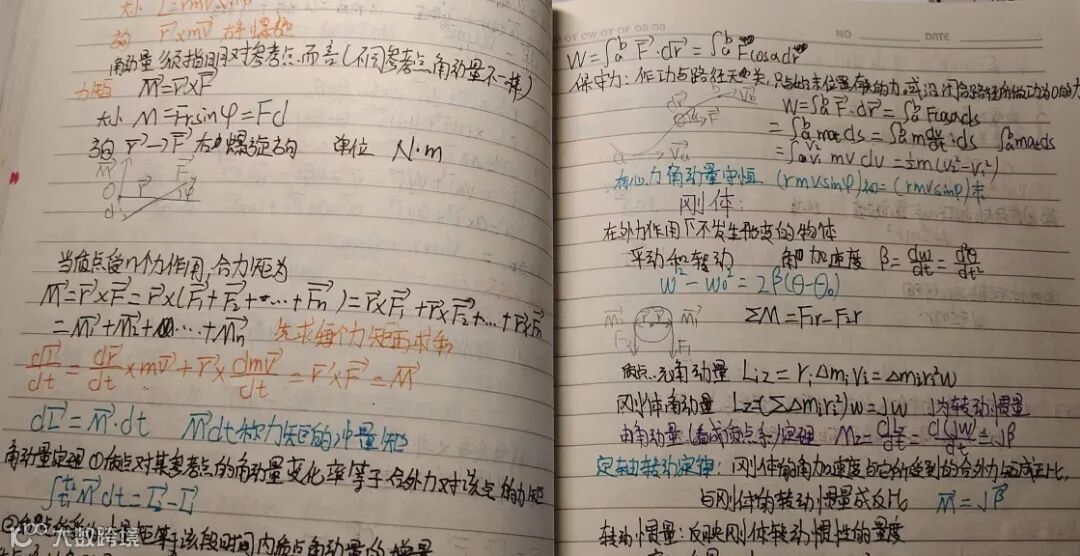 大小 L=rmv
方向 r×mv 右手螺旋
角动量须指明对参考点而言(不同参考点角动量不一样)
力矩 M=r×F
大小 M=Frsinφ=Fd
方向 r→F 右手螺旋方向 单位 N·m
M
F
O r φ
d
当质点受n个力作用,合力矩为
M=r×F=r×(F₁+F₂+…+Fn)=r×F₁+r×F₂+…+r×Fn
=M₁+M₂+…+Mn 先求每个力矩再求和
dL/dt=dr/dt×mv+r×dmv/dt=r×F=M
dL=M·dt Mdt称力矩的冲量矩
角动量定理①质点对某参考点的角动量变化率等于合外力对该点的力矩
∫Mdt=L₂-L₁
等于该段时间内质点角动量的增量
大数跨境
NO DATE
W=∫ₐᵇF·dr=∫ₐᵇFcosαdr
保守力:作功与路径无关,只与始末位置有关的力,或沿闭合路径所做功为0的力
W=∫ₐᵇF·dr=∫ₐᵇFcosαds
=∫ₐᵇmaₜds=∫ₐᵇm dv/dt·ds ∫ₐᵇmaₜds
=∫mvdv=½m(v₂²-v₁²)
dr b Vb
F
a Va
有心力角动量守恒 (rmvsinφ)初=(rmvsinφ)末
刚体:
在外力作用下不发生形变的物体
平动和转动 角加速度 β=dw/dt=d²θ/dt²
w²-w₀²=2β(θ-θ₀)
M₂ r r M₁ ΣM=F₁r-F₂r
F₂ F₁
质点元角动量 Liz=riΔmivi=Δmiri²w
刚体角动量 Lz=(ΣΔmiri²)w=Jw J为转动惯量
由角动量(看成质点系)定理 Mz=dLz/dt=d(Jw)/dt=Jβ
定轴转动定律:刚体的角加速度与它所受到的合外力矩成正比,
与刚体的转动惯量成反比 M=Jβ
转动惯量:反映刚体转动惯性的量度